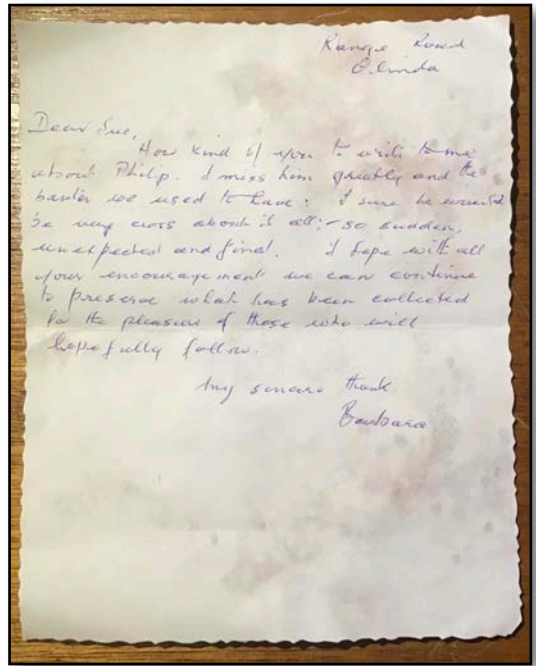 Range Road
Olinda
Dear Sue,
How kind of you to write to me
about Philip. I miss him greatly and the
banter we used to have: I sure he would
be very cross about it all:- so sudden,
unexpected and final. I hope with all
your encouragement we can continue
to preserve what has been collected
for the pleasure of those who will
hopefully follow.
My sincere thank
Barbara